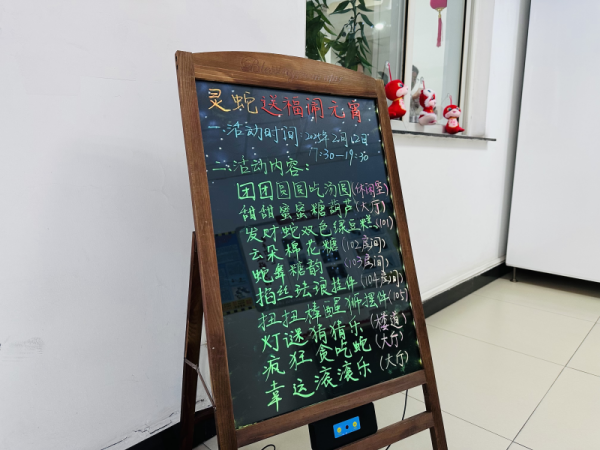 灵蛇送福闹元宵
一、活动时间:2025年2月12日
17:30-19:30
二、活动内容:
团团圆圆吃汤圆(休闲室)
甜甜蜜蜜糖葫芦(大厅)
发财蛇双色绿豆糕(101)
云朵棉花糖(102房间)
蛇年糖韵(103房间)
掐丝珐琅挂件(104房间)
扭扭棒醒狮摆件(105)
灯谜猜猜乐(楼道)
疯狂贪吃蛇(大厅)
幸运滚滚乐(大厅)